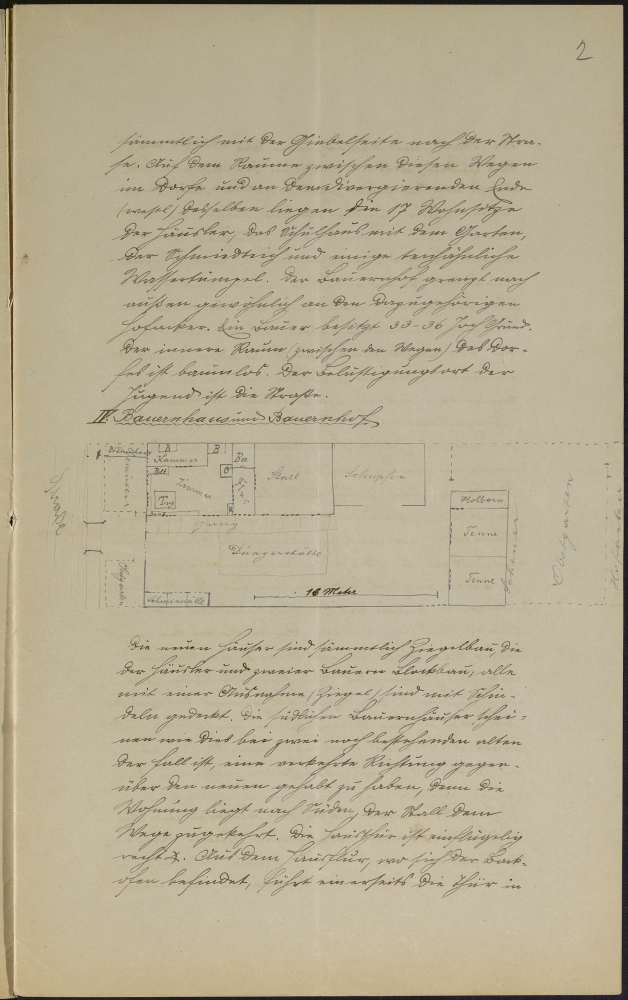 2
sämmtlich mit der Giebelseite nach der Stra-
ße. Auf dem Raume zwischen diesen Wegen
im Dorfe und an dem divergierenden Ende
(westl.) desselben liegen die 17 Wohnsitze
der Häusler, das Schulhaus mit dem Garten,
der Schmiedteich und einige teichähnliche
Wassertümpel. Der Bauernhof grenzt nach
außen gewöhnlich an den dazugehörigen
Hofacker. Ein Bauer besitzt 33-36 Joch Grund.
Der innere Raum (zwischen den Wegen) des Dor-
fes ist baumlos. Der Belustigungsort der
Jugend ist die Straße.
IV. Bauernhaus und Bauernhof.
Straße
Kammer
B
B
Ba
Btt
Zimmer
O
Stall
Schupfen
Tisch
Gang
Düngerstätte
16 Meter
Holborn
Tenne
Tenne
Scheuer
Obstgarten
Hofacker
Die neuen Häuser sind sämmtlich Ziegelbau, die
der Häusler und zweier Bauern Blockbau; alle
mit einer Ausnahme (Ziegel) sind mit Schin-
deln gedeckt. Die südlichen Bauernhäuser schei-
nen wie dies bei zwei noch bestehenden alten
der Fall ist, eine verkehrte Richtung gegen-
über den neuen gehabt zu haben, denn die
Wohnung liegt nach Süden, der Stall dem
Wege zugekehrt. Die Hausthür ist einflügelig
rechts. Aus dem Hausflur, wo sich der Back-
ofen befindet, führt einerseits die Thür in